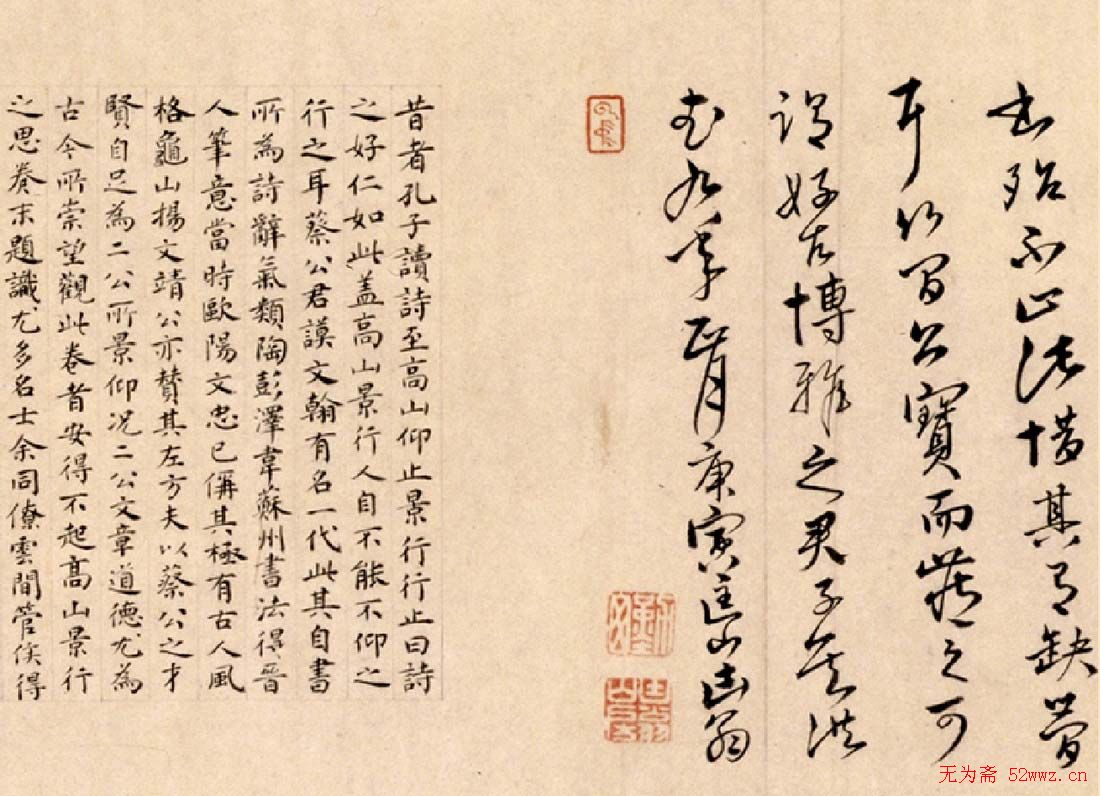 殆不止此惜其有缺簡
耳公寶而藏之可
謂好古博雅之君子矣洪
武九年正月庚寅匡山翁
昔者孔子讀詩至高山仰止景行行止曰詩
之好仁如此蓋高山景行人自不能不仰之
行之耳蔡公君謨文翰有名一代此其自書
所為詩辭氣類陶彭澤韋蘇州書法得晉
人筆意當時歐陽文忠已偁其極有古人風
格龜山揚文靖公亦贊其左方夫以蔡公之才
賢自足為二公所景仰況二公文章道德尤為
古今所崇望觀此卷者安得不起高山景行
之思卷末題識尤多名士余同僚雲間管侯得
无为斋 52wwz.cn